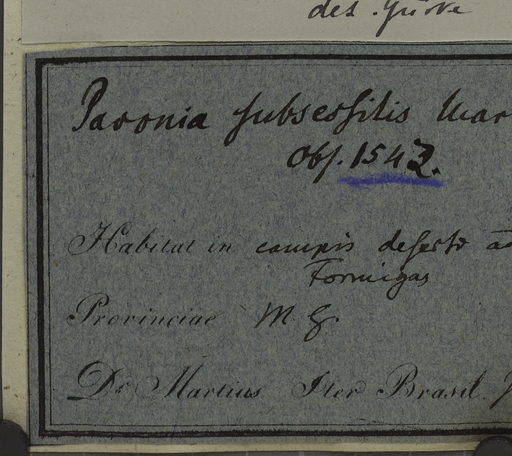 det. Gürke
Pavonia subsessilis Mar
Obs. 1542.
Habitat in campis deserto ad
Formigas
Provinciae M. G.
Dr. Martius Iter Brasil.